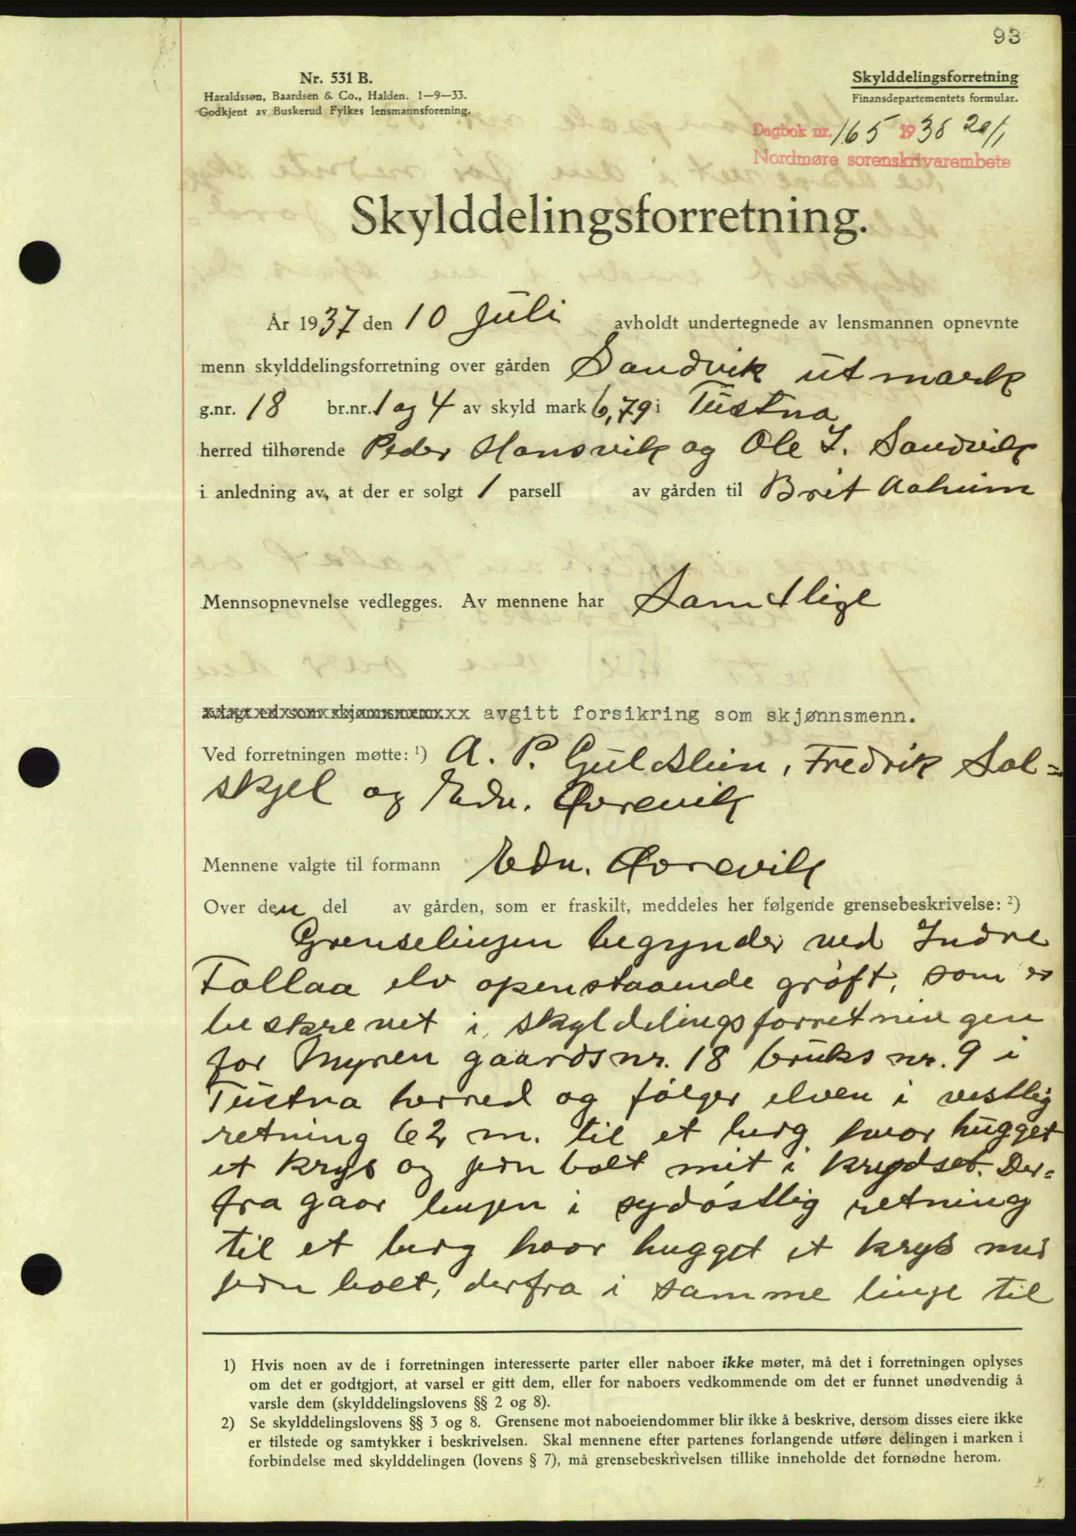 93
Nr. 531 B.
Haraldssøn, Baardsen & Co., Halden. 1—9—33.
Godkjent av Buskerud Fylkes lensmannsforening.
Skylddelingsforretning
Finansdepartementets formular.
Dagbok nr. 165 1938 20/1
Nordmøre sorenskrivarembete
Skylddelingsforretning.
År 1937 den 10 Juli avholdt undertegnede av lensmannen opnevnte
menn skylddelingsforretning over gården Sandvik utmark
g.nr. 18 br.nr. 1 og 4 av skyld mark 6,79 i Tustna
herred tilhørende Peder Hansvik og Ole I. Sandvik
i anledning av, at der er solgt 1 parsell av gården til Brit Aaheim
Mennsopnevnelse vedlegges. Av mennene har Samtlige
avgitt forsikring som skjønnsmenn.
Ved forretningen møtte: 1) A. P. Gulstein, Fredrik Sol=
skjel og Edv. Ørevik
Mennene valgte til formann Edv. Ørevik
Over den del av gården, som er fraskilt, meddeles her følgende grensebeskrivelse: 2)
Grenselinjen begynder ved Indre
Follaa elv openstaaende grøft, som er
beskrevet i skylddelingsforretningen
for Myren gaardsnr. 18 bruks nr. 9 i
Tustna herred og følger elven i vestlig
retning 62 m. til et berg hvor hugget
et krys og jern bolt mit i krydset. Der=
fra gaar linjen i sydøstlig retning
til et berg hvor hugget et krys med
jern bolt, derfra i samme linje til
1) Hvis noen av de i forretningen interesserte parter eller naboer ikke møter, må det i forretningen oplyses
om det er godtgjort, at varsel er gitt dem, eller for naboers vedkommende om det er funnet unødvendig å
varsle dem (skylddelingslovens §§ 2 og 8).
2) Se skylddelingslovens §§ 3 og 8. Grensene mot naboeiendommer blir ikke å beskrive, dersom disses eiere ikke
er tilstede og samtykker i beskrivelsen. Skal mennene efter partenes forlangende utføre delingen i marken i
forbindelse med skylddelingen (lovens § 7), må grensebeskrivelsen tillike inneholde det fornødne herom.